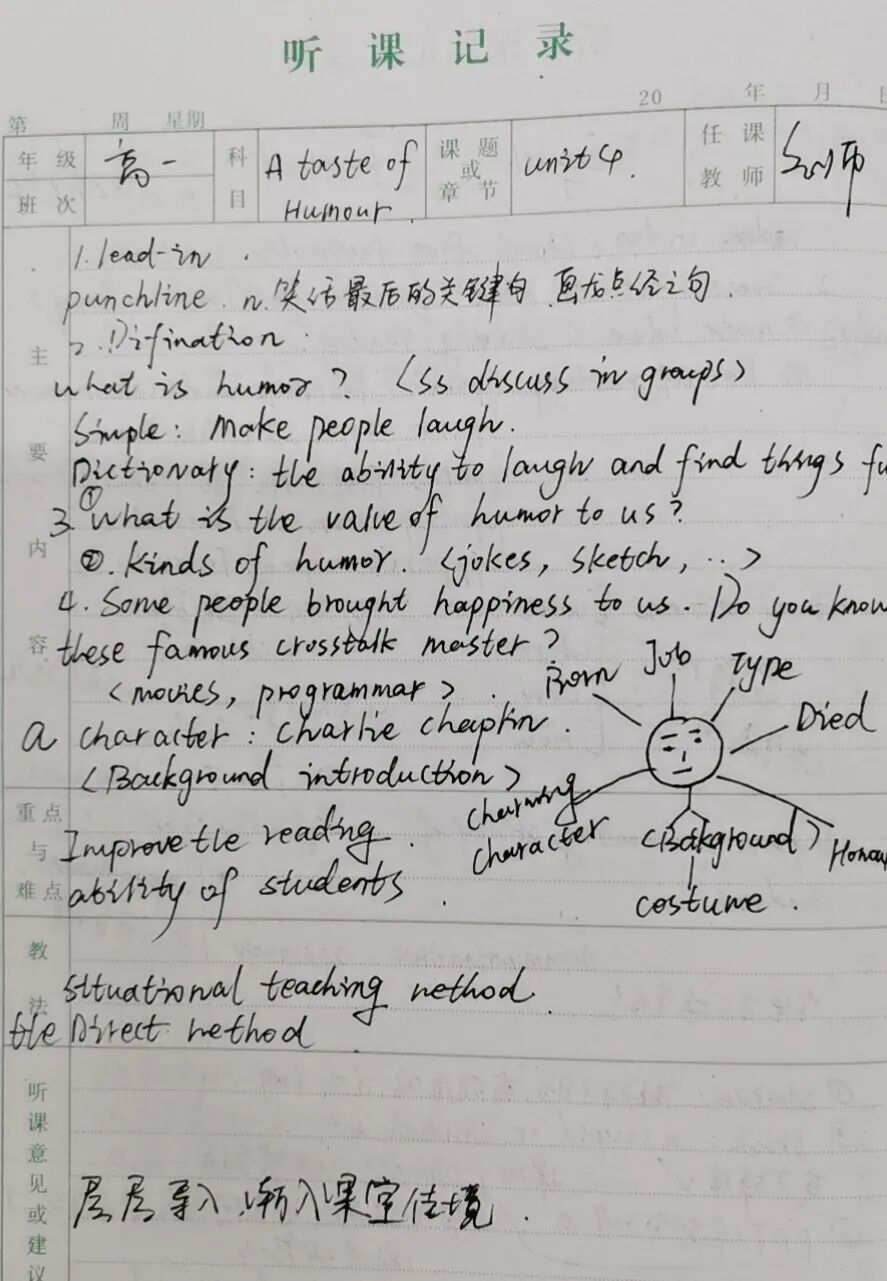 听课记录
20 年 月 日
第 周 星期
年级 高一 科目 A taste of Humour. 课题或章节 unit 4. 任课教师
班次
主要内容
1. lead-in .
punchline. n. 笑话最后的关键句 画龙点径之句.
2. Difination
what is humor? <Ss discuss in groups>
Simple: Make people laugh.
Dictionary: the ability to laugh and find things fu
3 ① what is the value of humor to us?
②. Kinds of humor. <jokes, sketch, ...>
4. Some people brought happiness to us. Do you know
these famous crosstalk master?
<movies, programmar> .
a character: Charlie Chaplin.
<Background introduction>
Born
Job
Type
Died
Charming
character
<Bakground>
costume.
Honou
重点与难点
Improve the reading.
ability of students.
教法
situational teaching method.
the Direct method
听课意见或建议
层层导入,渐入课堂佳境.